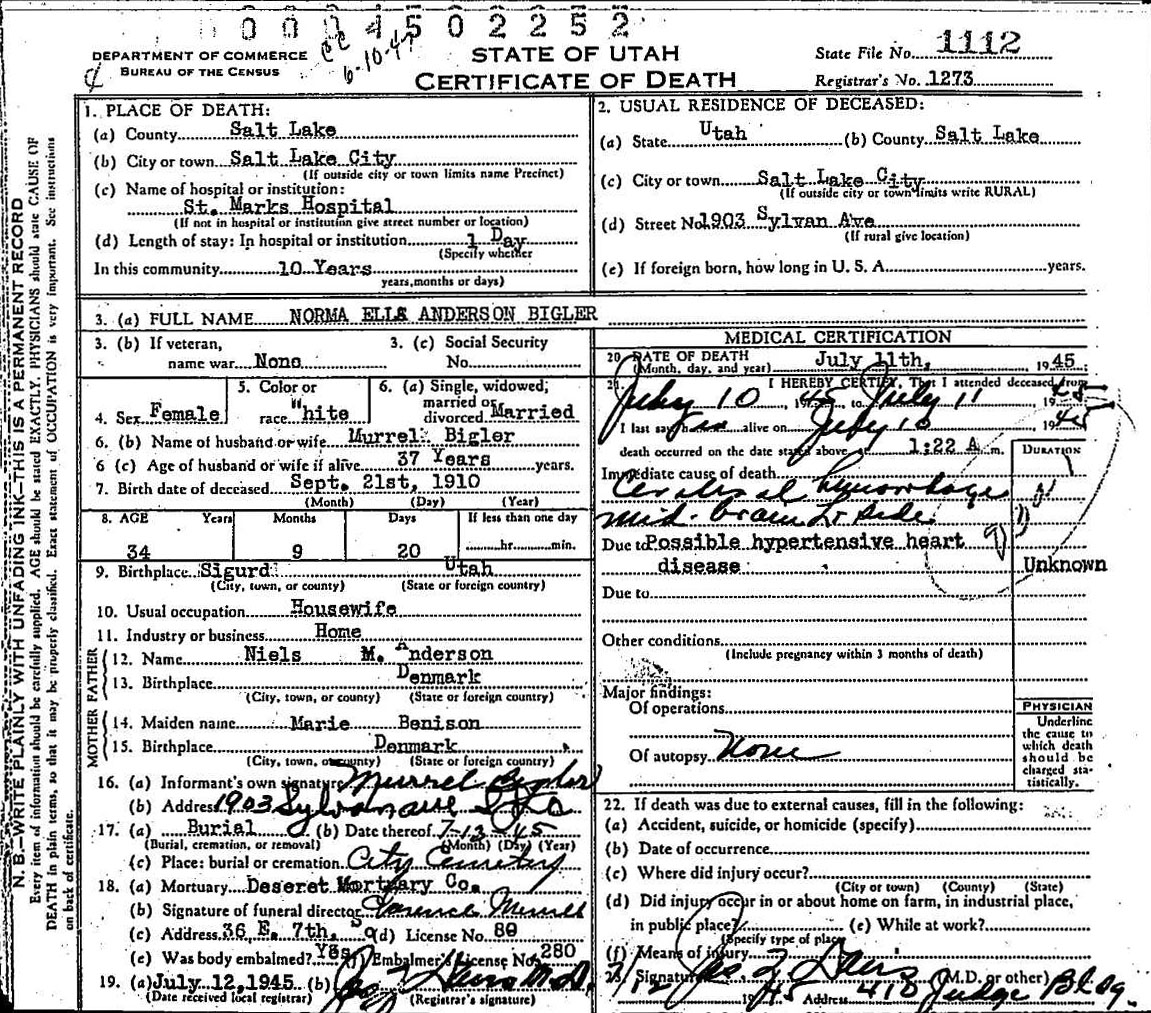 0 0 0 4 5 0 2 2 5 2
DEPARTMENT OF COMMERCE
BUREAU OF THE CENSUS
CC
6-10-47
STATE OF UTAH
CERTIFICATE OF DEATH
State File No. 1112
Registrar's No. 1273
N. B.—WRITE PLAINLY WITH UNFADING INK—THIS IS A PERMANENT RECORD
Every item of information should be carefully supplied. AGE should be stated EXACTLY. PHYSICIANS should state CAUSE OF
DEATH in plain terms, so that it may be properly classified. Exact statement of OCCUPATION is very important. See instructions
on back of certificate.
1. PLACE OF DEATH:
(a) County Salt Lake
(b) City or town Salt Lake City
(If outside city or town limits name Precinct)
(c) Name of hospital or institution:
St. Marks Hospital
(If not in hospital or institution give street number or location)
(d) Length of stay: In hospital or institution 1 Day
(Specify whether
In this community 10 Years
years, months or days)
2. USUAL RESIDENCE OF DECEASED:
(a) State Utah (b) County Salt Lake
(c) City or town Salt Lake City
(If outside city or town limits write RURAL)
(d) Street No 1903 Sylvan Ave
(If rural give location)
(e) If foreign born, how long in U. S. A. years.
3. (a) FULL NAME NORMA ELLA ANDERSON BIGLER
3. (b) If veteran,
name war None
3. (c) Social Security
No.
4. Sex Female
5. Color or
race White
6. (a) Single, widowed,
married or
divorced Married
6. (b) Name of husband or wife Murrel Bigler
6 (c) Age of husband or wife if alive 37 Years years.
7. Birth date of deceased Sept. 21st, 1910
(Month) (Day) (Year)
8. AGE Years Months Days If less than one day
34 9 20 hr. min.
9. Birthplace Sigurd Utah
(City, town, or county) (State or foreign country)
10. Usual occupation Housewife
11. Industry or business Home
FATHER
12. Name Niels M. Anderson
13. Birthplace Denmark
(City, town, or county) (State or foreign country)
MOTHER
14. Maiden name Marie Benison
15. Birthplace Denmark
(City, town, or county) (State or foreign country)
16. (a) Informant's own signature Murrel Bigler
(b) Address 1903 Sylvan ave
17. (a) Burial (b) Date thereof 7-13-45
(Burial, cremation, or removal) (Month) (Day) (Year)
(c) Place: burial or cremation City Cemetery
18. (a) Mortuary Deseret Mortuary Co.
(b) Signature of funeral director Clarence Merrill
(c) Address 36 E. 7th. So (d) License No. 80
(e) Was body embalmed? Yes (f) Embalmer's License No. 280
19. (a) July 12, 1945 (b) M.D.
(Date received local registrar) (Registrar's signature)
MEDICAL CERTIFICATION
20. DATE OF DEATH July 11th, 1945.
(Month, day, and year)
21. I HEREBY CERTIFY, That I attended deceased from
July 10, 1945, to July 11 1945
I last saw her alive on July 10 1945
death occurred on the date stated above at 1:22 A. m.
DURATION
Immediate cause of death
Cerebral hemorrhage
mid. brain Lt side
Due to Possible hypertensive heart
disease Unknown
Due to
Other conditions
(Include pregnancy within 3 months of death)
Major findings:
Of operations
Of autopsy None
PHYSICIAN
Underline
the cause to
which death
should be
charged sta-
tistically.
22. If death was due to external causes, fill in the following:
(a) Accident, suicide, or homicide (specify)
(b) Date of occurrence
(c) Where did injury occur?
(City or town) (County) (State)
(d) Did injury occur in or about home on farm, in industrial place,
in public place? (e) While at work?
(Specify type of place)
(f) Means of injury
23. Signature (M.D. or other)
7/12 1945 Address 410 Judge Bldg.